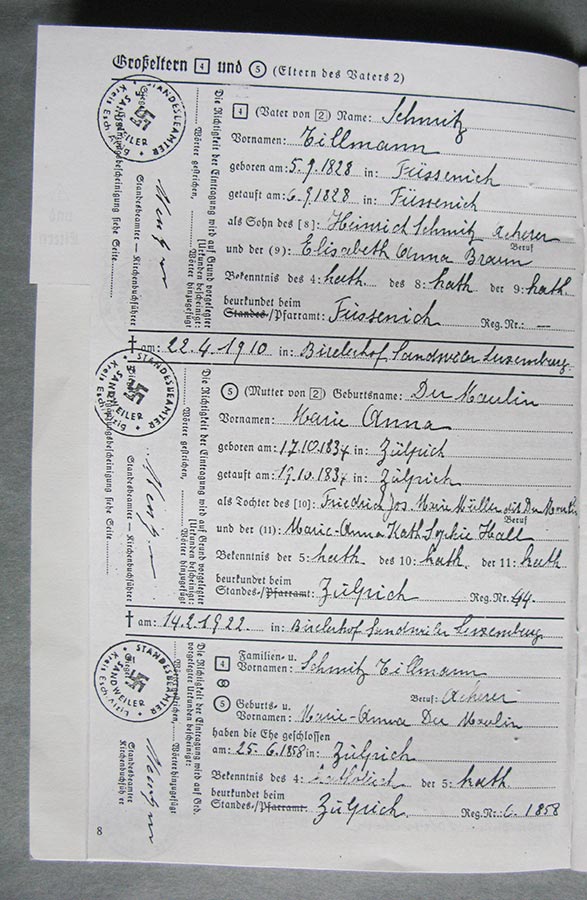 Großeltern 4 und 5 (Eltern des Vaters 2)
STANDESBEAMTER
SANDWEILER
Kreis Esch-Alzig
Die Richtigkeit der Eintragung wird auf Grund vorgelegter
Urkunden bescheinigt:
Wörter gestrichen, Wörter hinzugefügt
Standesbeamter — Kirchenbuchführer
4 (Vater von 2) Name: Schmitz
Vornamen: Tillmann
geboren am: 5.9.1828 in: Füssenich
getauft am: 6.9.1828 in: Füssenich
als Sohn des [8]: Heinrich Schmitz Acherer
Beruf
und der (9): Elisabeth Anna Braun
Bekenntnis des 4: kath. des 8: kath. der 9: kath.
beurkundet beim
Standes-/Pfarramt: Füssenich Reg.Nr.: —
† am: 22.4.1910 in: Birelerhof Sandweiler Luxemburg.
STANDESBEAMTER
SANDWEILER
Kreis Esch-Alzig
Die Richtigkeit der Eintragung wird auf Grund vorgelegter
Urkunden bescheinigt:
Wörter gestrichen, Wörter hinzugefügt
Standesbeamter — Kirchenbuchführer
5 (Mutter von 2) Geburtsname: Du Moulin
Vornamen: Marie Anna
geboren am: 17.10.1834 in: Zülpich
getauft am: 19.10.1834 in: Zülpich
als Tochter des [10]: Friedrich Jos. Marie Müller dit Du Moulin
Beruf
und der (11): Marie-Anna Kath Sophie Hall
Bekenntnis der 5: kath. des 10: kath. der 11: kath
beurkundet beim
Standes-/Pfarramt: Zülpich Reg.Nr. 44.
† am: 14.2.1922 in: Birelerhof Sandweiler Luxemburg
STANDESBEAMTER
SANDWEILER
Kreis Esch-Alzig
Die Richtigkeit der Eintragung wird auf Grd.
vorgelegter Urkunden bescheinigt:
Wörter gestrichen, Wörter hinzugefügt
Standesbeamter
Kirchenbuchführer
4 Familien- u.
Vornamen: Schmitz Tillmann
Beruf: Acherer
5 Geburts- u.
Vornamen: Marie-Anna Du Moulin
haben die Ehe geschlossen
am: 25.6.1858 in: Zülpich
Bekenntnis des 4: der 5: kath.
beurkundet beim
Standes-/Pfarramt: Zülpich. Reg.Nr.: 6. 1858
8